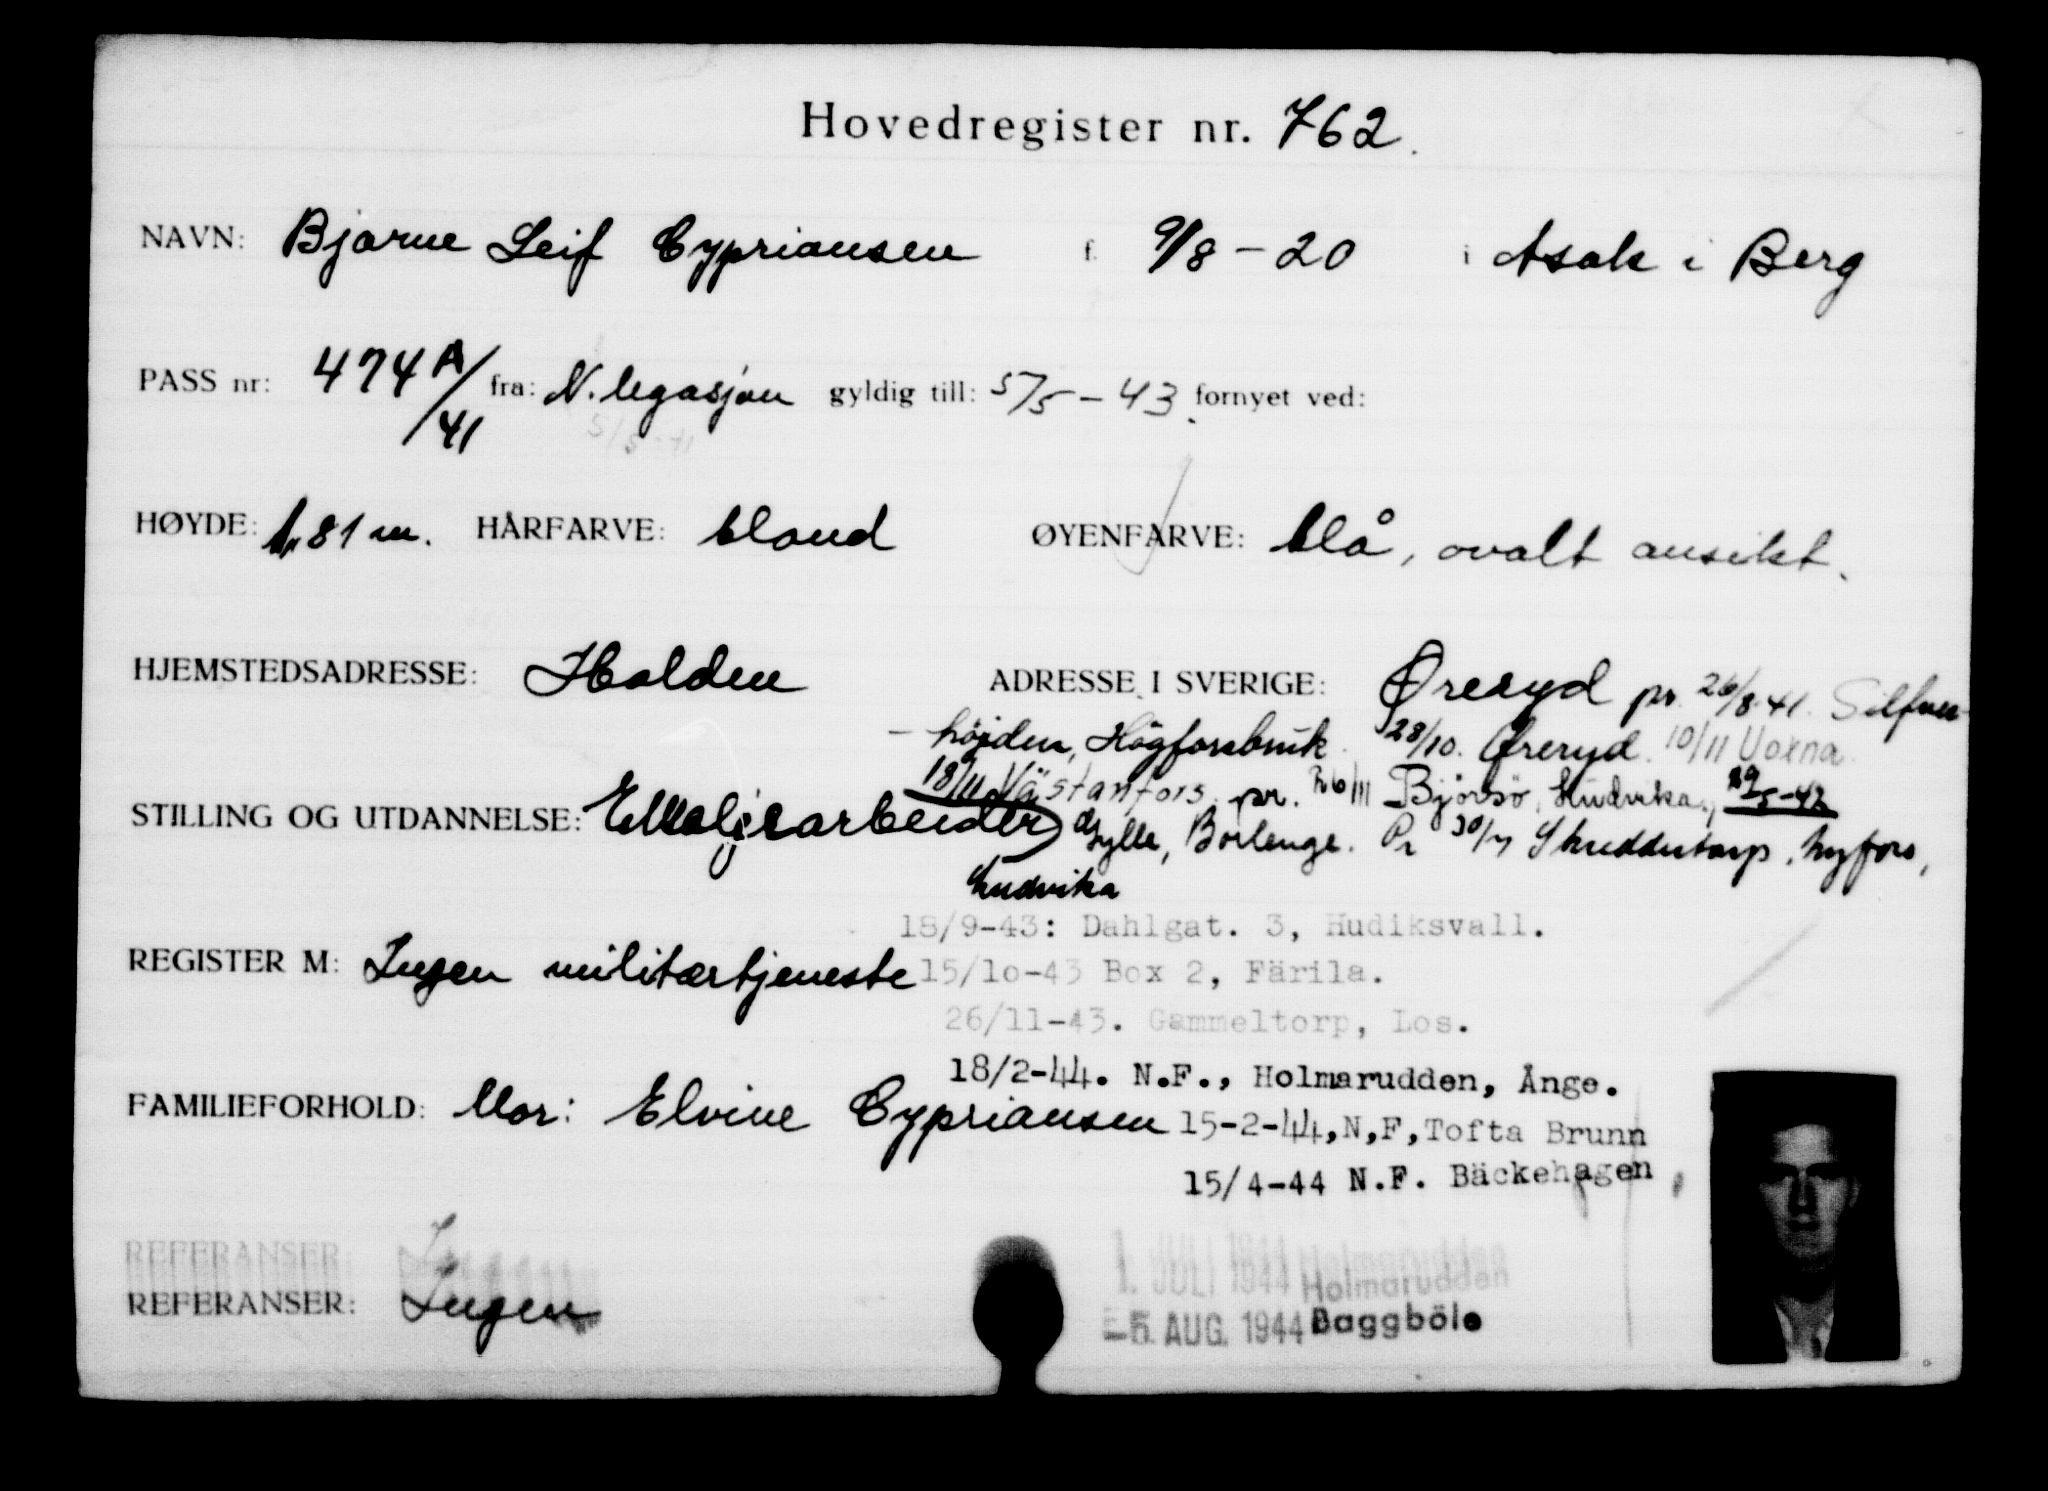 Hovedregister nr. 762.
NAVN: Bjarne Leif Cypriansen f. 9/8-20 i Asak i Berg
PASS nr: 474A/41 fra: N. legasjon gyldig till: 5/5-43. fornyet ved:
5/5-41
HØYDE: 1,81 m. HÅRFARVE: blond ØYENFARVE: blå, ovalt ansikt.
HJEMSTEDSADRESSE: Halden ADRESSE I SVERIGE: Øreryd pr. 26/8-41. Silfver-
- höjden, Högforsbruk. 28/10. Øreryd. 10/11 Voxna
18/11 Västanfors. pr. Björsjö, Ludvika.,
STILLING OG UTDANNELSE: Emaljearbeider Gylle, Borlenge. Pr 30/7 Nyfors,
Ludvika
18/9-43: Dahlgat. 3, Hudiksvall.
REGISTER M: Ingen militærtjeneste 15/10-43 Box 2, Färila.
26/11-43. Gammeltorp, Los.
18/2-44. N.F., Holmarudden, Ånge.
FAMILIEFORHOLD: Mor: Elvine Cypriansen 15-2-44,N,F,Tofta Brunn
15/4-44 N.F. Bäckehagen
REFERANSER:
1. JULI 1944 Holmarudden
REFERANSER: Ingen
-5. AUG. 1944 Baggböle